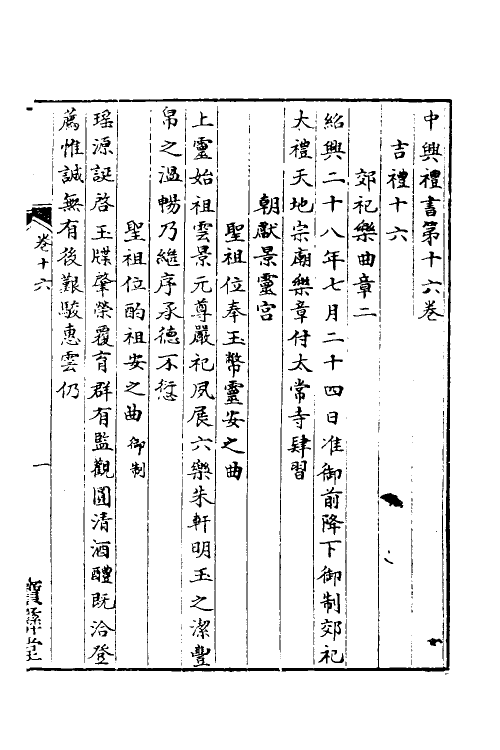 中興禮書第十六卷
吉禮十六
郊祀樂曲章二
紹興二十八年七月二十四日准御前降下御制郊祀
大禮天地宗廟樂章付太常寺肄習
朝獻景靈宮
聖祖位奉玉幣靈安之曲
上靈始祖雲景元尊嚴祀夙展六樂朱軒明玉之潔豐
帛之溫暢乃繼序承德不愆
聖祖位酌祖安之曲御制
瑶源誕啓玉牒肇榮覆育群有監觀圓清酒醴既洽登
薦惟誠無有後艱駿惠雲仍
卷十六
一